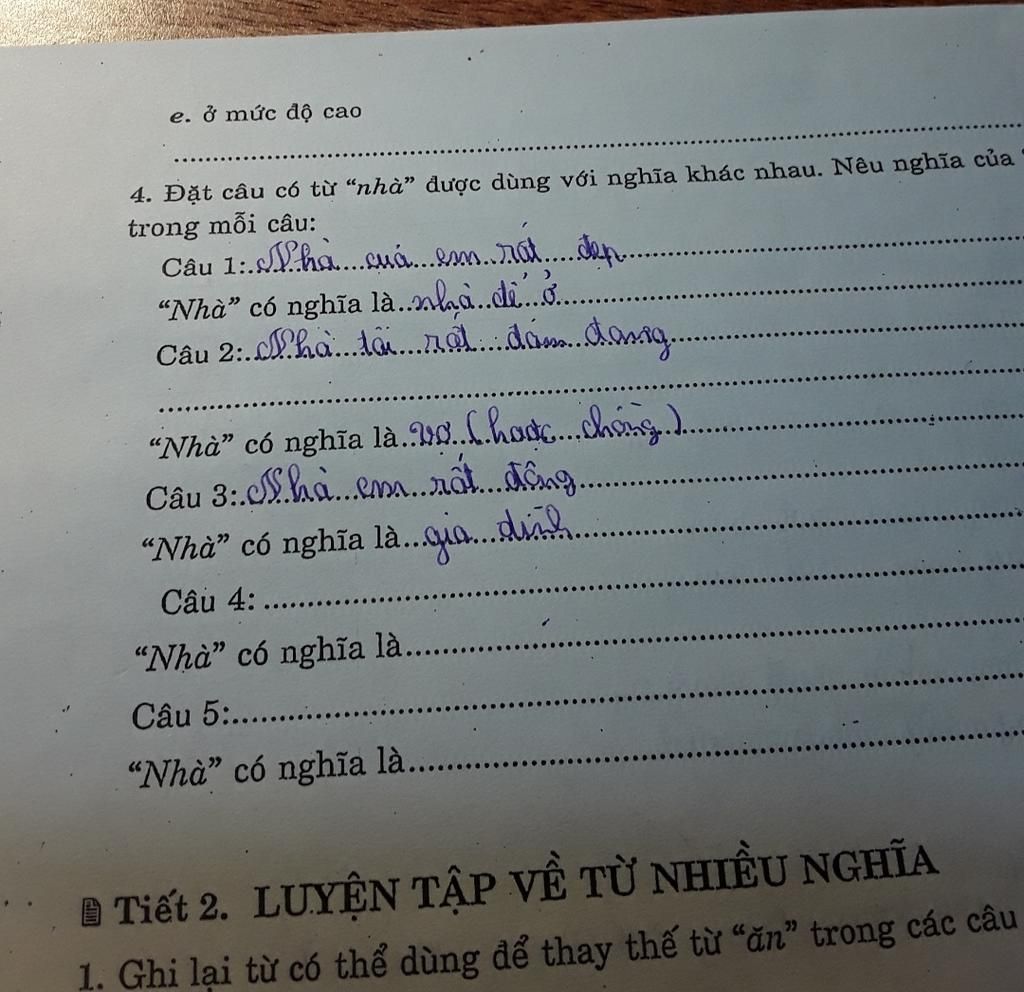 e. ở mức độ cao
4. Đặt câu có từ “nhà” được dùng với nghĩa khác nhau. Nêu nghĩa của
trong mỗi câu:
Câu 1: Nhà của em rất đẹp
“Nhà” có nghĩa là nhà để ở
Câu 2: Nhà tôi rất đảm đang
“Nhà” có nghĩa là vợ (hoặc chồng)
Câu 3: Nhà em rất đông
“Nhà” có nghĩa là gia đình
Câu 4:
“Nhà” có nghĩa là
Câu 5:
“Nhà” có nghĩa là
Tiết 2. LUYỆN TẬP VỀ TỪ NHIỀU NGHĨA
1. Ghi lại từ có thể dùng để thay thế từ “ăn” trong các câu